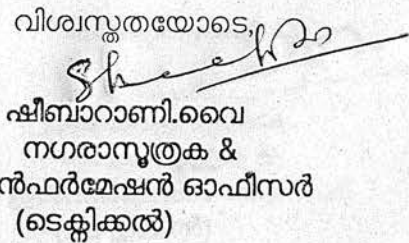 വിശ്വസ്തതയോടെ,
ഷീബാറാണി.വൈ
നഗരാസൂത്രക &
ൻഫർമേഷൻ ഓഫീസർ
(ടെക്നിക്കൽ)